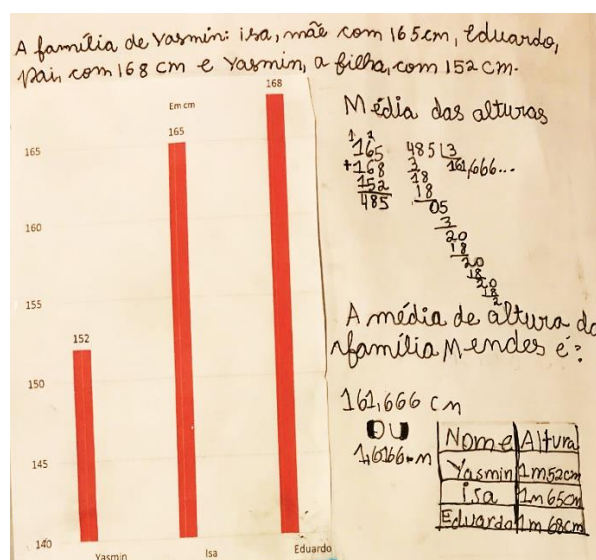 A família de Yasmin: isa, mãe com 165cm, Eduardo,
pai, com 168 cm e Yasmin, a filha, com 152 cm.
168
Em cm
165
152
165
160
155
150
145
140
Yasmin
Isa
Eduardo
Média das alturas
1 2
165
+168
152
485
485 3
3 161,666...
18
18
05
3
20
18
20
18
20
18
2
A média de altura da
família Mendes é?
161,666 cm
OU
Nome Altura
Yasmin 1m52cm
isa 1m65cm
Eduardo 1m68cm